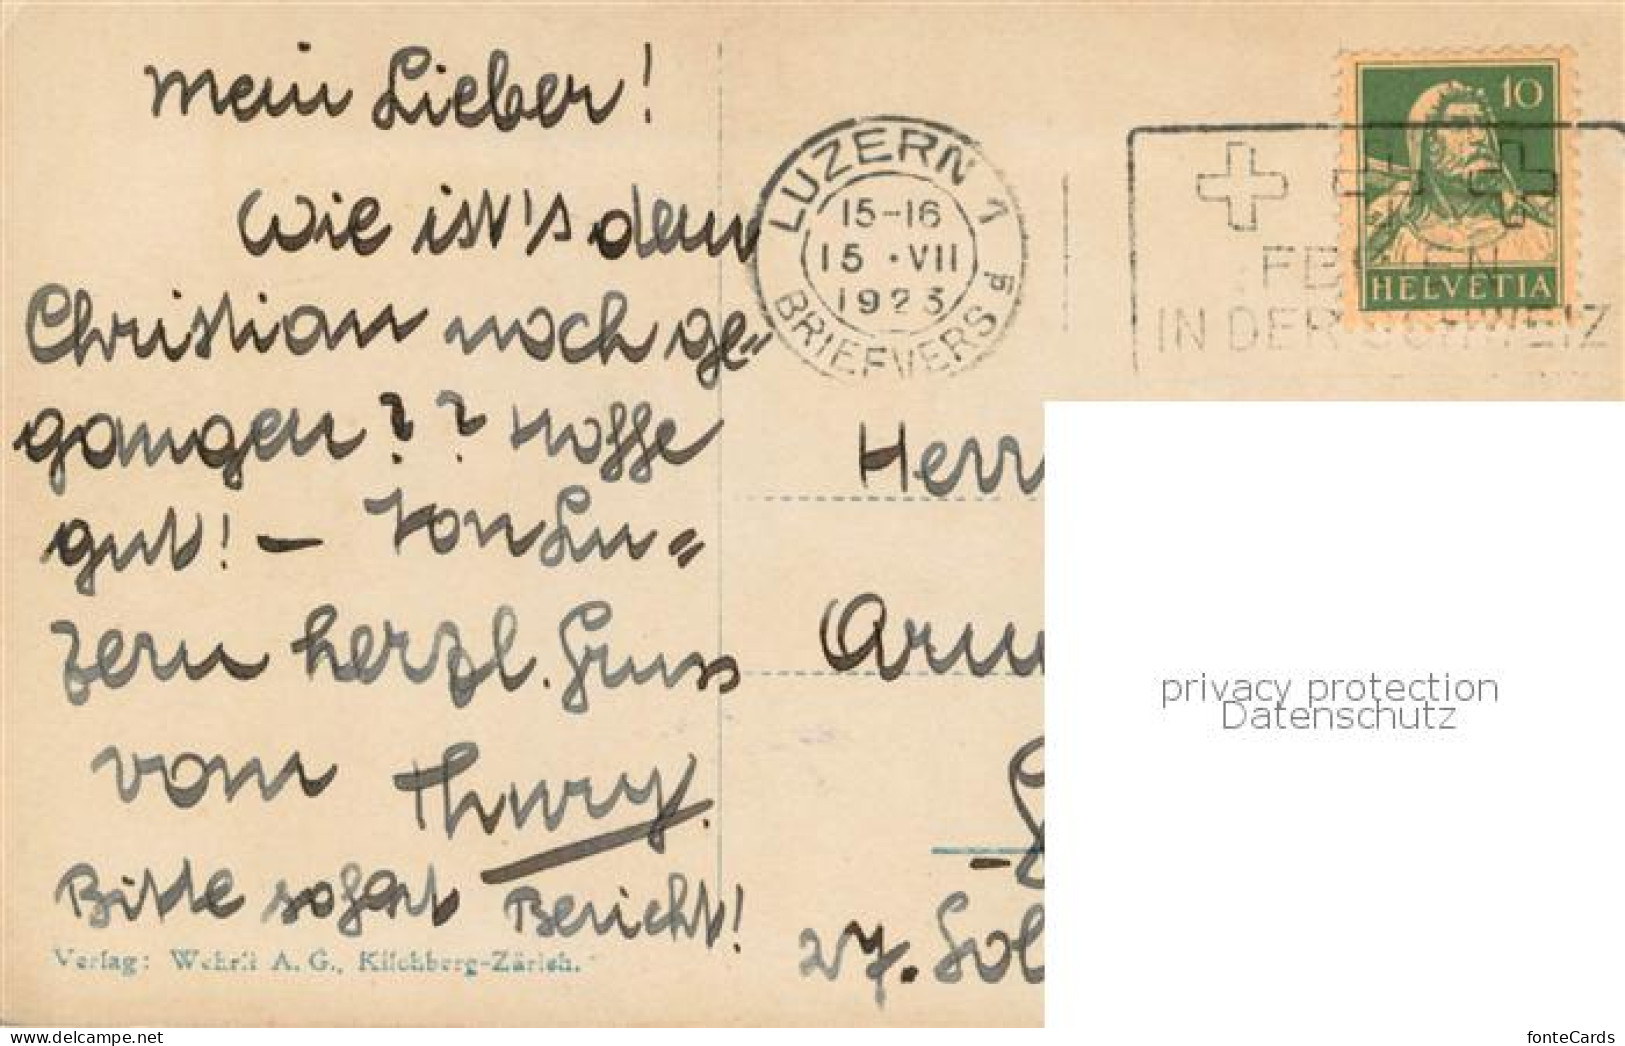 Mein Lieber!
Wie ist's dem
Christian noch ge=
gangen?? Hoffe
gut! – Von Lu=
zern herzl. Gruss
vom Thury.
Bitte sofort Bericht!
Verlag: Wehrli A. G., Kilchberg-Zürich.
LUZERN 1
15-16
15 · VII
1923
BRIEFVERS
FERIEN
IN DER SCHWEIZ
10
HELVETIA
Herr
27.
privacy protection
Datenschutz
fonteCards